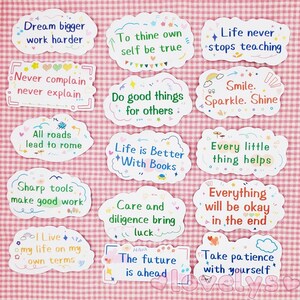 Dream bigger
work harder
To thine own
self be true
Life never
stops teaching
Never complain
never explain
Do good things
for others
Smile.
Sparkle. Shine
All roads
lead to rome
Life is Better
With Books
Every little
thing helps
Sharp tools
make good work
Care and
diligence bring
luck
Everything
will be okay
in the end
I Live
my life on my
own terms
The future
is ahead
Take patience
with yourself